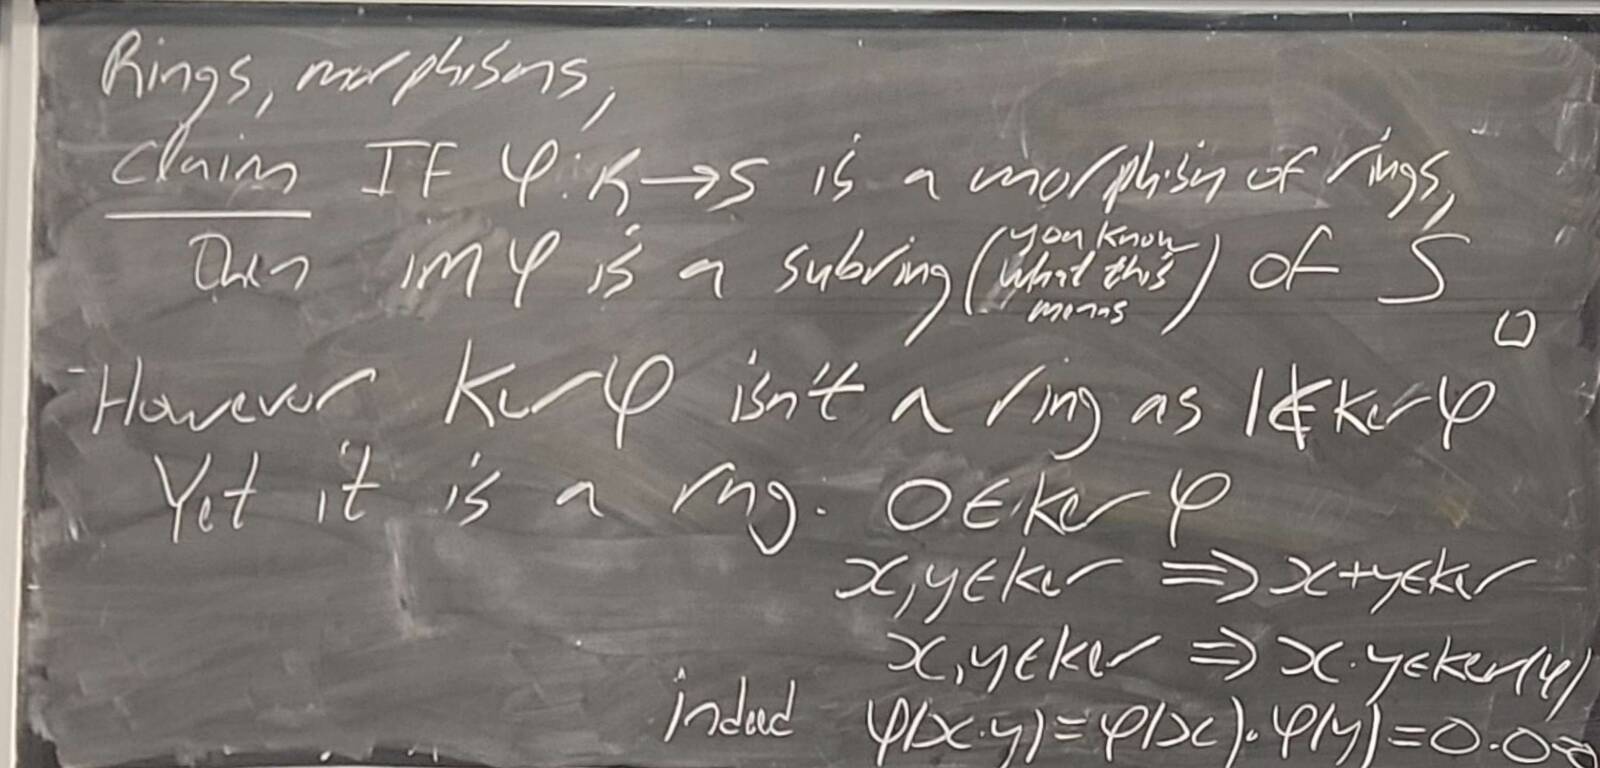 Rings, morphisms,
Claim If φ: R→S is a morphism of rings,
Then im φ is a subring (you know what this means) of S □
However Ker φ isn't a ring as 1∉ker φ
Yet it is a rng. 0∈ker φ
x,y∈ker ⇒ x+y∈ker
x,y∈ker ⇒ x·y∈ker(φ)
indeed φ(x·y)=φ(x)·φ(y)=0·0=0